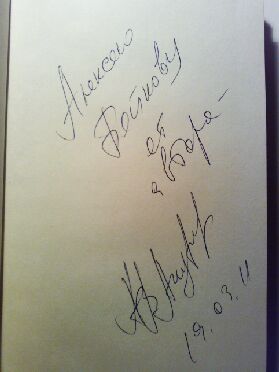 Алексею
Бойкову
от
автора -
19.03.11